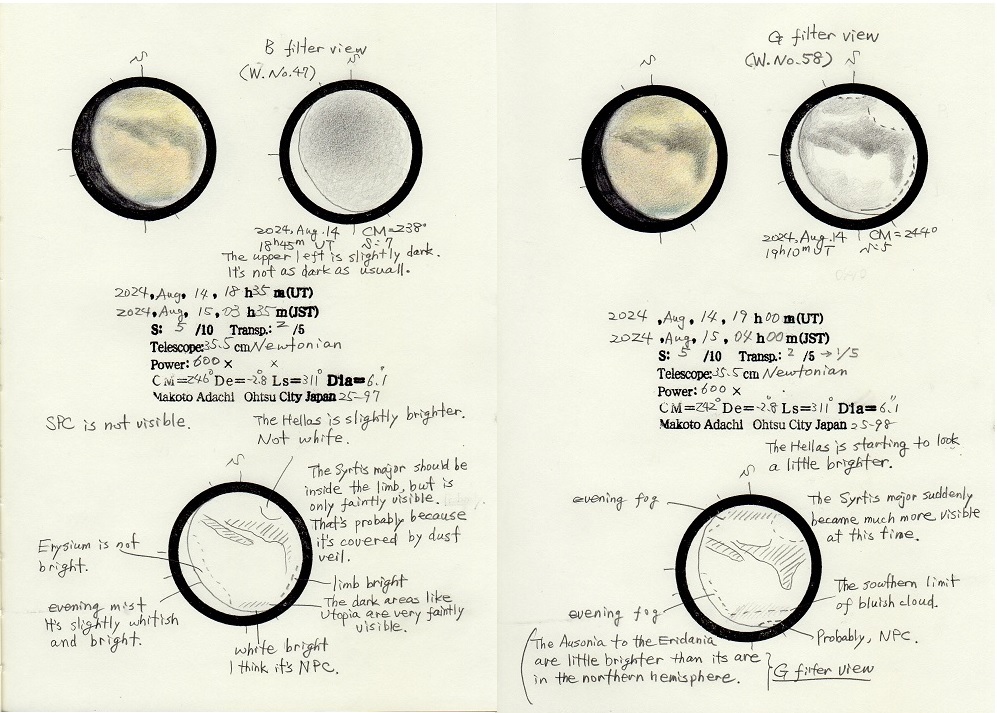 B filter view
S
(W.No.47)
S
2024, Aug.14 | CM=238°
18h45m UT S:7
The upper left is slightly dark.
It's not as dark as usuall.
2024, Aug, 14, 18 h35 m(UT)
2024, Aug, 15, 03 h35 m(JST)
S: 5 /10 Transp.: 2 /5
Telescope:35.5 cm Newtonian
Power: 600 × ×
De=-2.8 Ls=311° Dia=6".1
Makoto Adachi Ohtsu City Japan 25-97
SPC is not visible.
The Hellas is slightly brighter.
Not white.
S
The Syrtis major should be
inside the limb, but is
only faintly visible.
That's probably because
it's covered by dust
veil.
Erysium is not
bright.
limb bright
The dark areas like
Utopia are very faintly
visible.
evening mist
It's slightly whitish
and bright.
white bright
I think it's NPC.
G filter view
S
(W.No.58)
S
2024, Aug.14 | CM=244°
19h10m UT S:5
2024, Aug, 14, 19 h00 m(UT)
2024, Aug, 15, 04 h00 m(JST)
S: 5 /10 Transp: 2 /5 → 1/5
Telescope:35.5 cm Newtonian
Power: 600 ×
CM=242° De=-2.8 Ls=311° Dia=6".1
Makoto Adachi Ohtsu City Japan 25-98
The Hellas is starting to look
a little brighter.
S
evening fog
The Syrtis major suddenly
became much more visible
at this time.
The southern limit
of bluish cloud.
evening fog
Probably, NPC.
(The Ausonia to the Eridania
are little brighter than its are
in the northern hemisphere. } G filter view